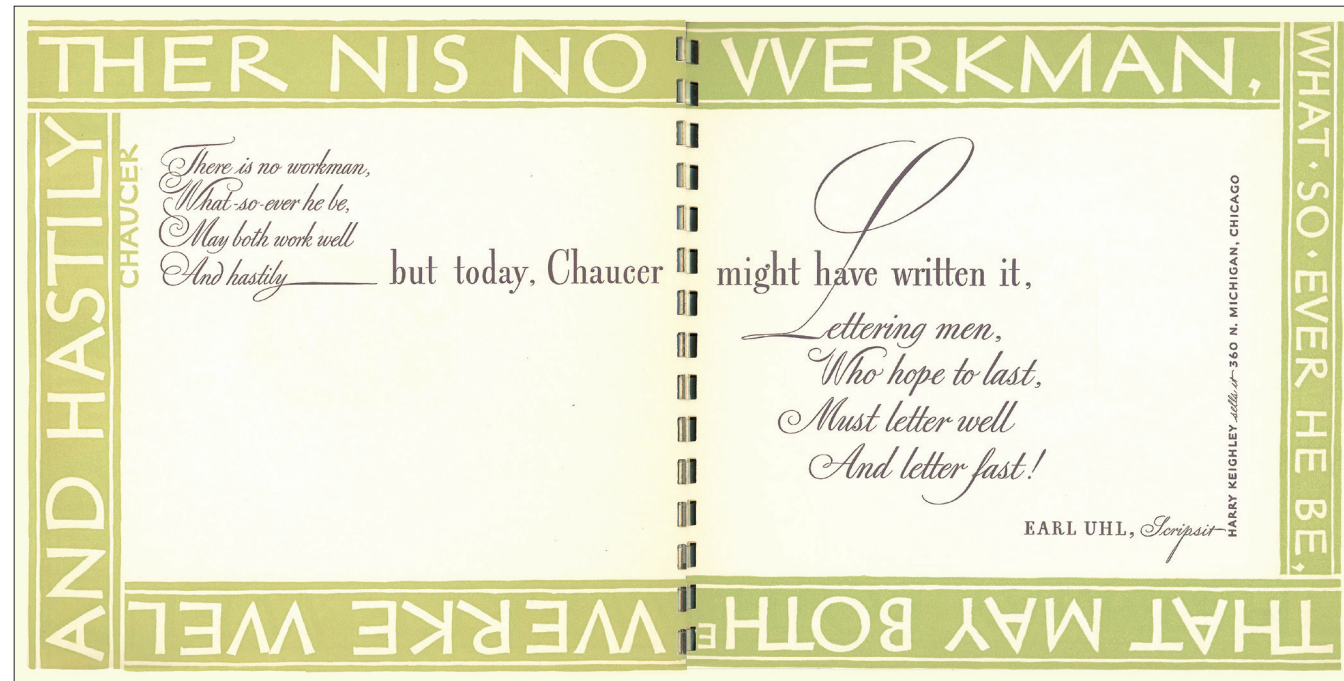 THER NIS NO WERKMAN,
WHAT · SO · EVER HE BE,
THAT MAY BOTHE WERKE WEL
AND HASTILY
CHAUCER
There is no workman,
What-so-ever he be,
May both work well
And hastily
but today, Chaucer might have written it,
Lettering men,
Who hope to last,
Must letter well
And letter fast!
EARL UHL, Scripsit
HARRY KEIGHLEY sells it 360 N. MICHIGAN, CHICAGO